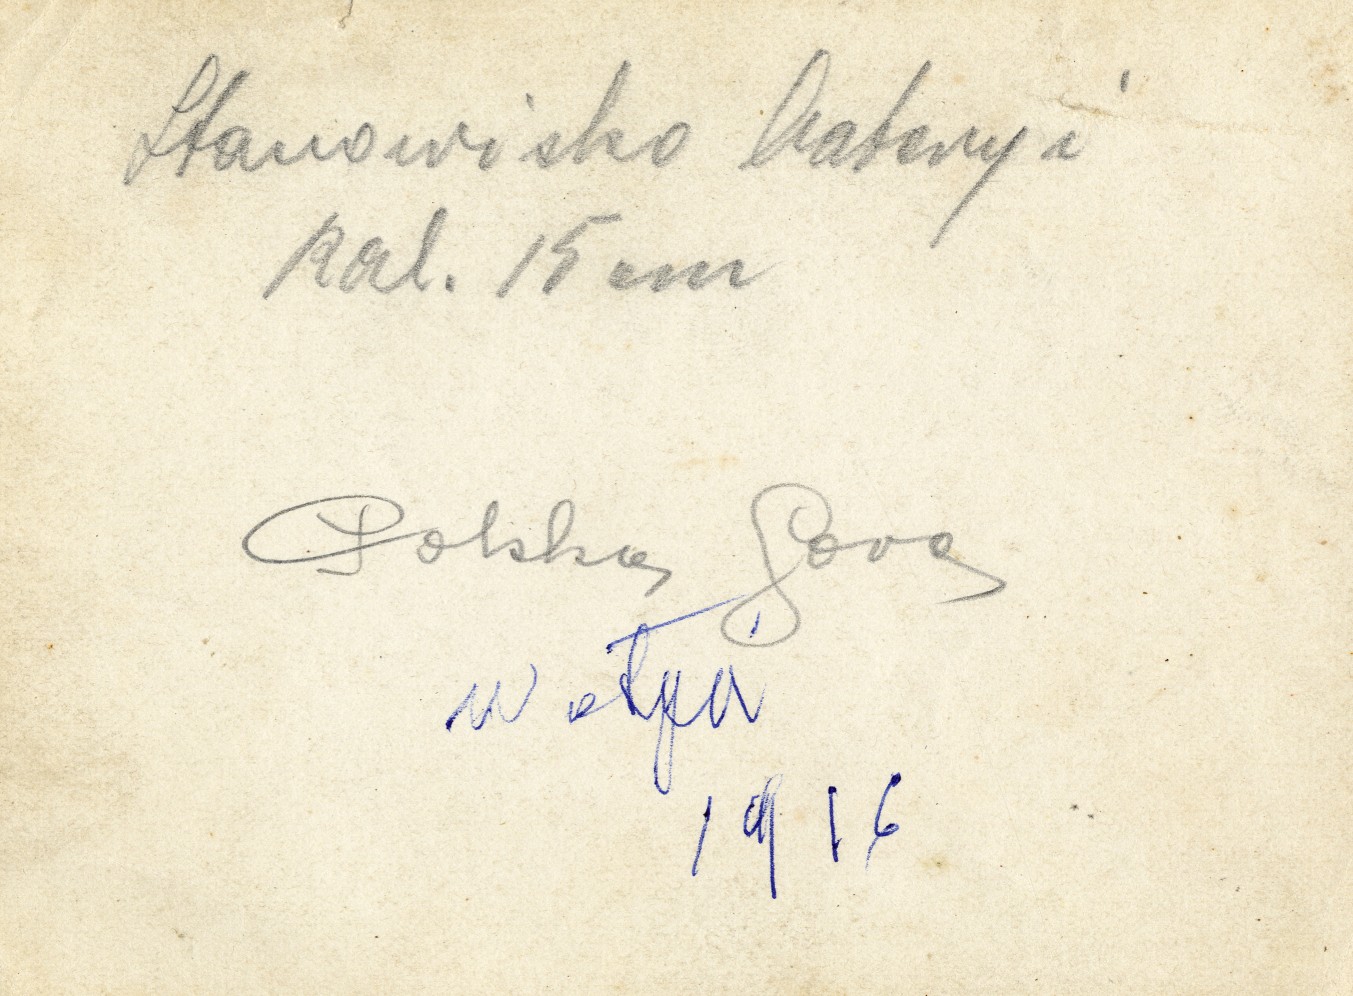 Stanowisko bateryi
kal. 15 cm
Polska Góra
Wołyń
1916